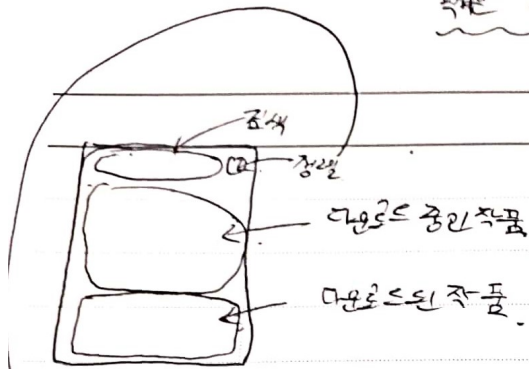 검색
정렬
다운로드 중인 작품
다운로드된 작품.